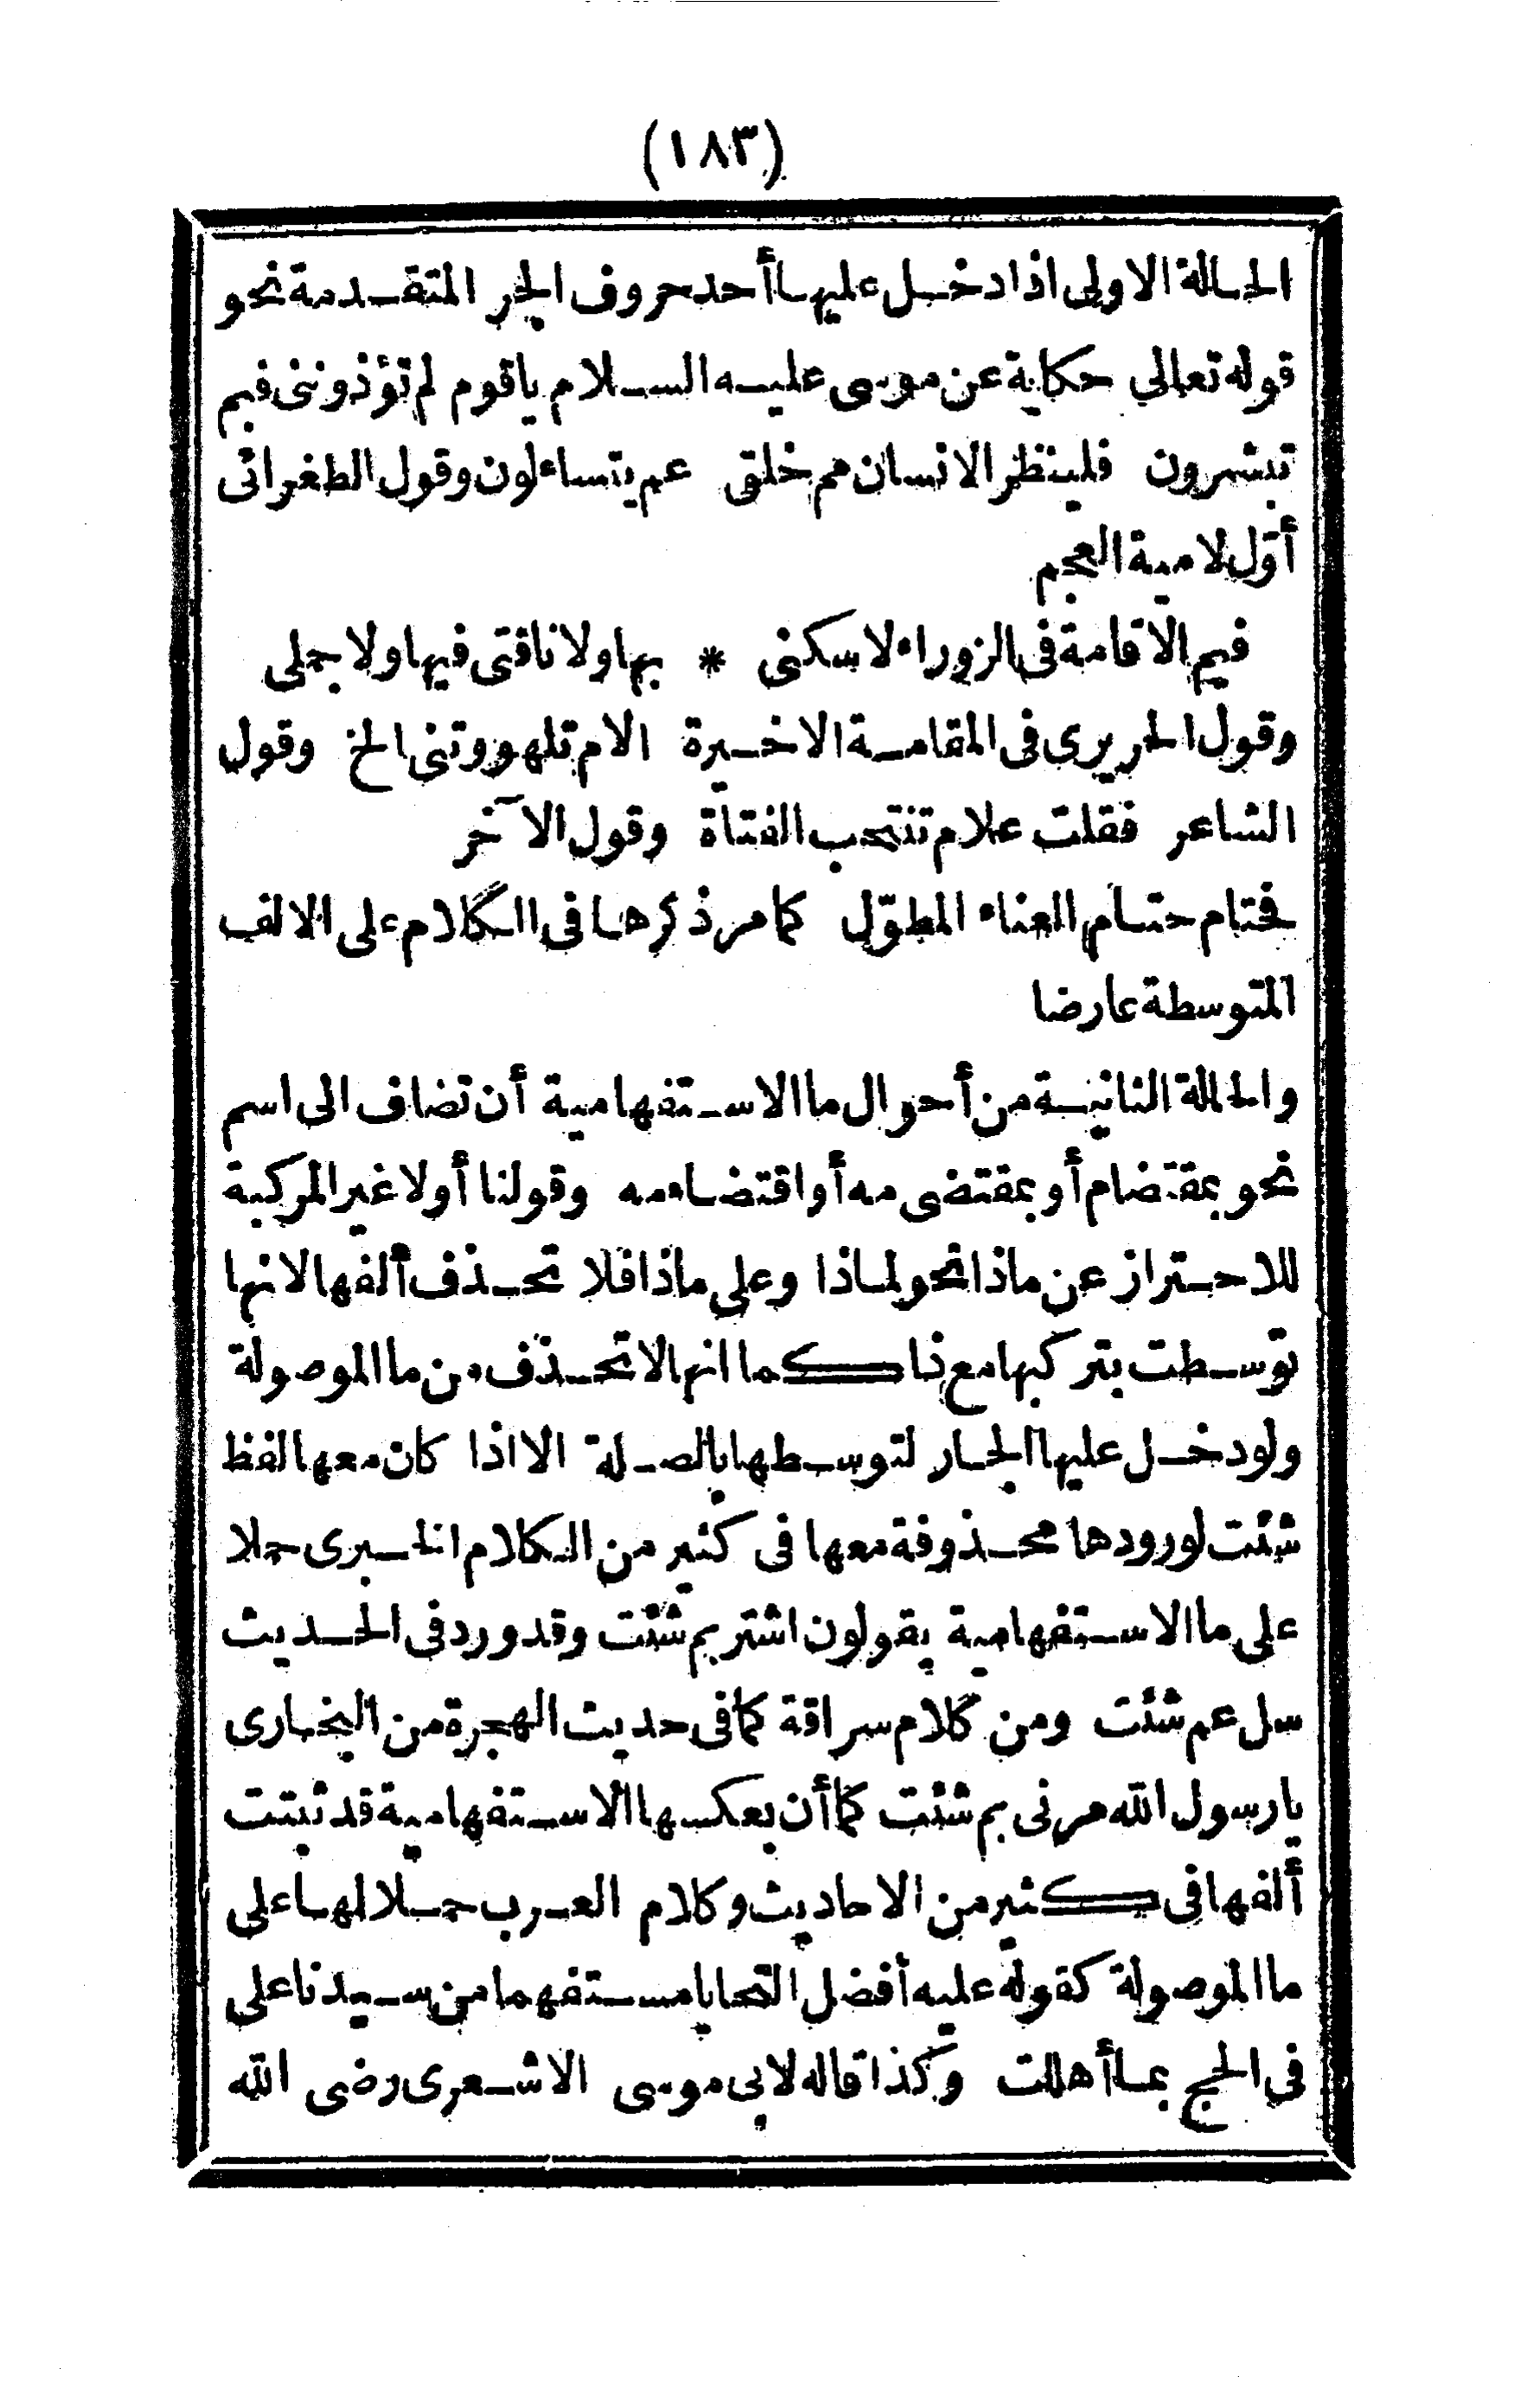 (١٨٣)
الحالة الاولى اذا دخل عليها أحد حروف الجر المتقدمة نحو
قوله تعالى حكاية عن موسى عليه السلام ياقوم لم تؤذوننى فبم
تبشرون فلينظر الانسان مم خلق عم يتساءلون وقول الطغرائى
أول لامية العجم
فيم الاقامة فى الزوراء لا سكنى * بها ولا ناقتى فيها ولا جملى
وقول الحريرى فى المقامة الاخيرة الام تلهو وتنى الخ وقول
الشاعر فقلت علام تنتحب الفتاة وقول الآخر
فحتام حتام العناء المطوّل كما مر ذكرها فى الكلام على الالف
المتوسطة عارضا
والحالة الثانية من أحوال ما الاستفهامية أن تضاف الى اسم
نحو بمقتضام أو بمقتضى مه أو اقتضاءمه وقولنا أولا غير المركبة
للاحتراز عن ماذا نحو لماذا وعلى ماذا فلا تحذف ألفها لانها
توسطت بتركبها مع ذا كما انها لا تحذف من ما الموصولة
ولو دخل عليها الجار لتوسطها بالصلة الا اذا كان معها لفظ
شئت لورودها محذوفة معها فى كثير من الكلام الخبرى حملا
على ما الاستفهامية يقولون اشتر بم شئت وقد ورد فى الحديث
سل عم شئت ومن كلام سراقة كما فى حديث الهجرة من البخارى
يا رسول الله مرنى بم شئت كما أن بعكسها الاستفهامية قد ثبتت
ألفها فى كثير من الاحاديث وكلام العرب حملا لها على
ما الموصولة كقوله عليه أفضل التحايا مستفهما من سيدنا على
فى الحج بما أهللت وكذا قاله لابى موسى الاشعرى رضى الله